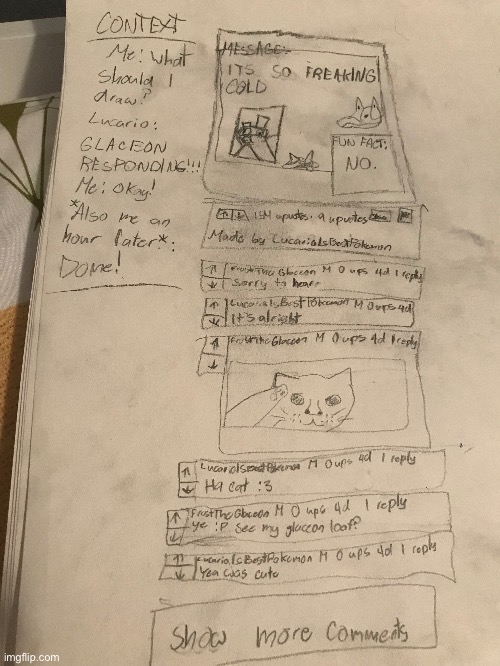 CONTEXT
Me: What
should I
draw?
Lucario:
GLACEON
RESPONDING!!!
Me: Okay!
*Also me an
hour later*:
Done!
MESSAGE:
ITS SO FREAKING
COLD
FUN FACT:
NO.
upvotes. 9 upvotes
Made by LucarioIsBestPokemon
FrostTheGlaceon M 0 ups 4d 1 reply
Sorry to hear
LucarioIsBestPokemon M 0 ups 4d
It's alright
FrostTheGlaceon M 0 ups 4d 1 reply
LucarioIsBestPokemon M 0 ups 4d 1 reply
Ha cat :3
FrostTheGlaceon M 0 ups 4d 1 reply
ye :P See my glaceon loaf?
LucarioIsBestPokemon M 0 ups 4d 1 reply
Yea was cute
Show more comments
imgflip.com